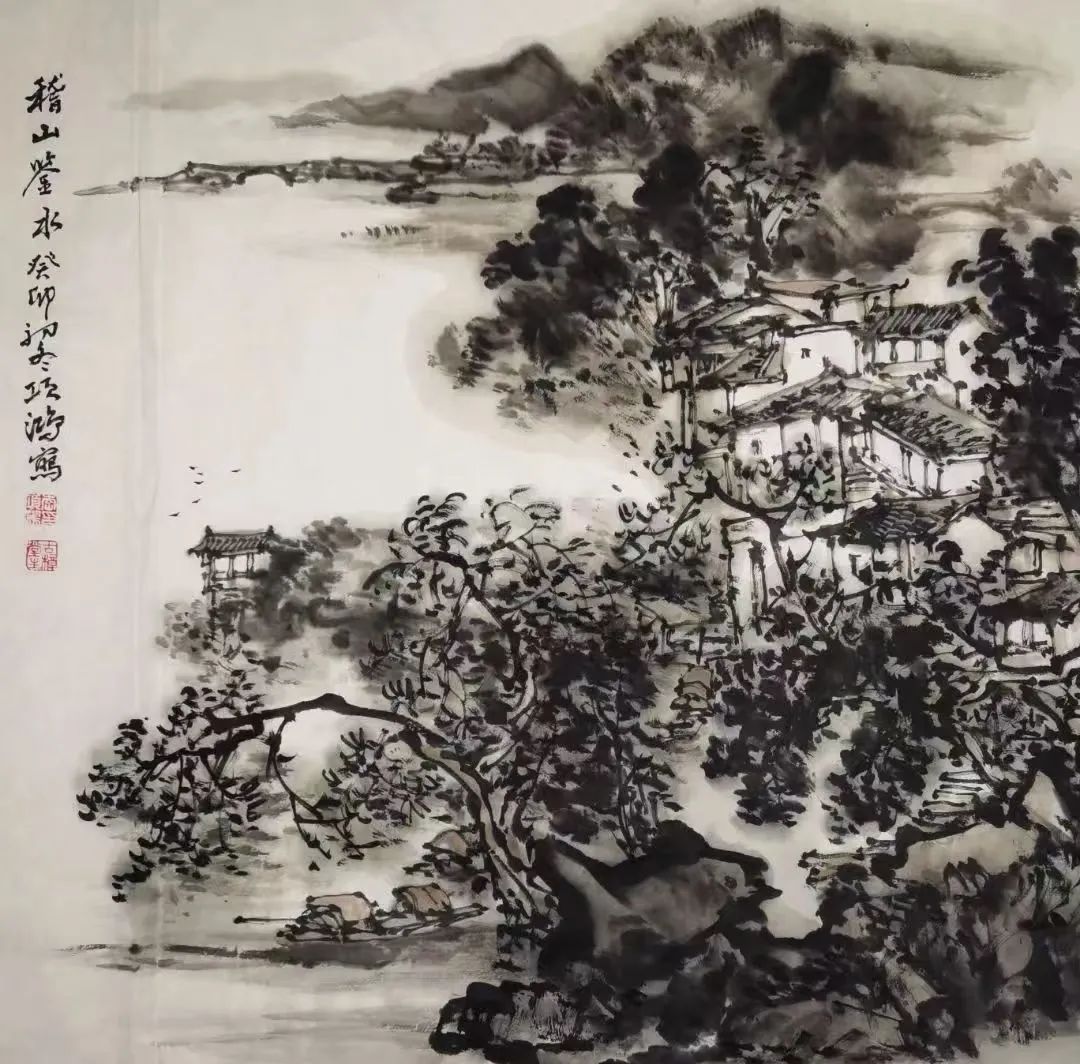 稽山鉴水癸卯初冬项鸿写